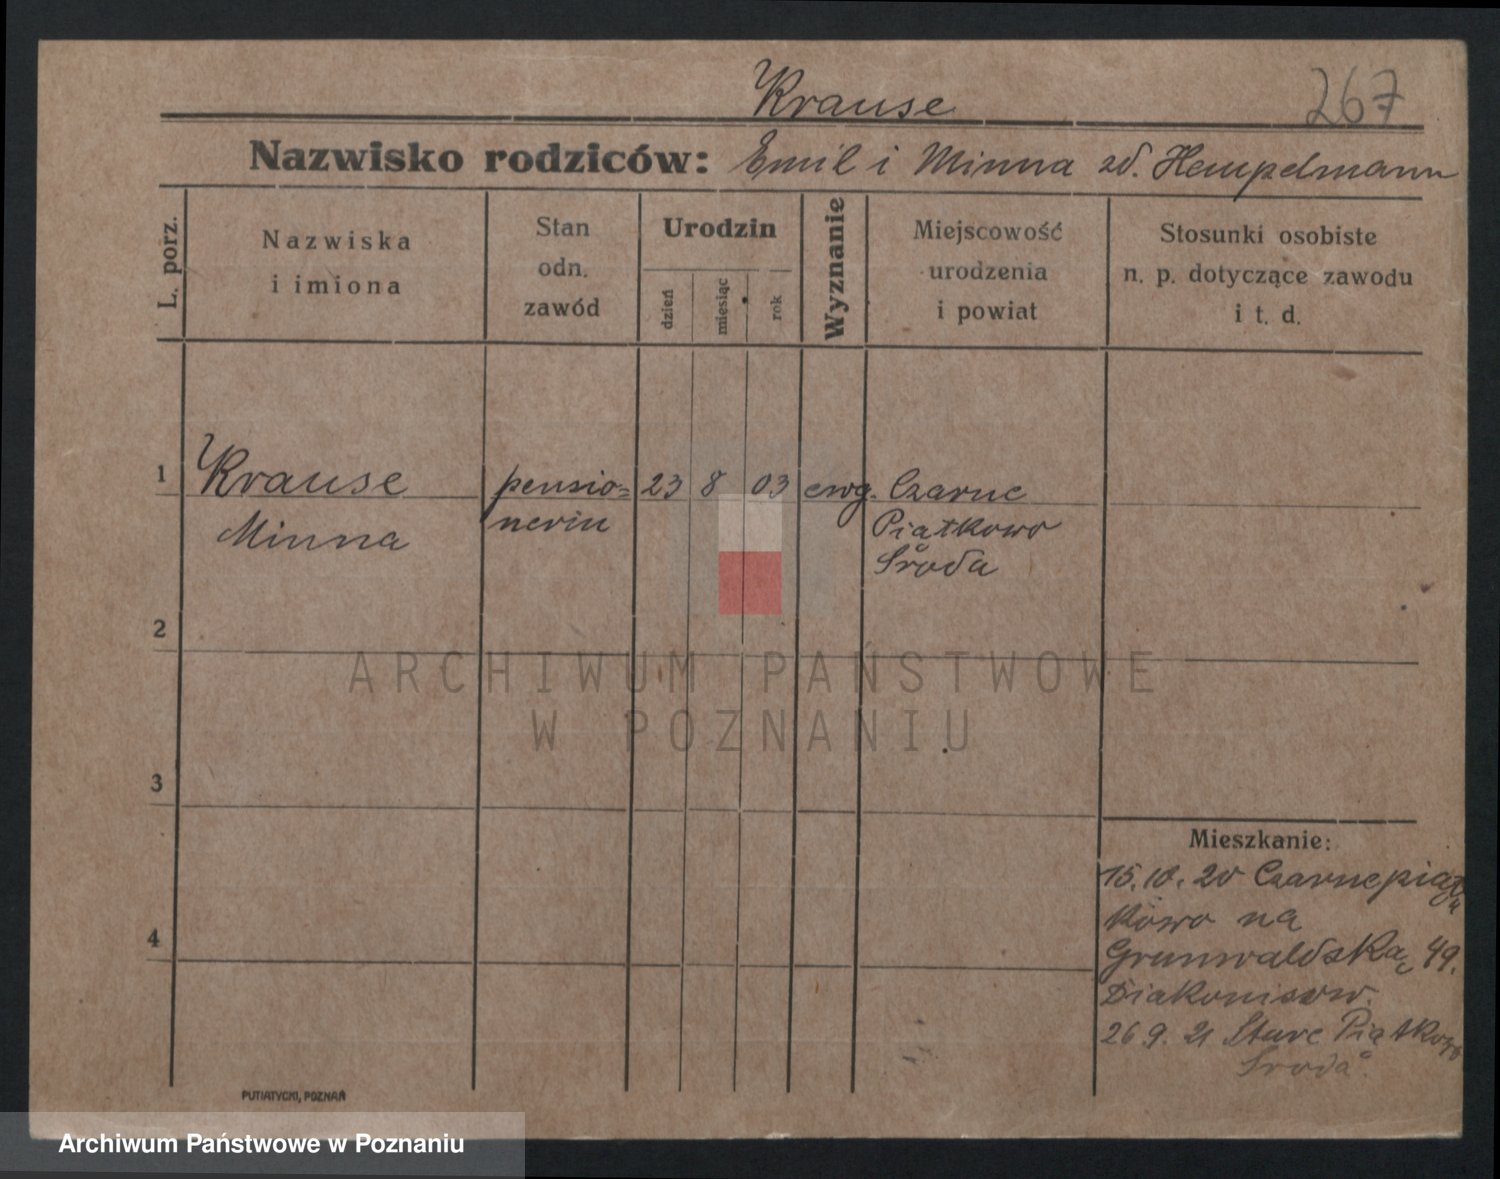 Krause
267
Nazwisko rodziców: Emil i Minna zd. Hempelmann
L. porz.
Nazwiska
i imiona
Stan
odn.
zawód
Urodzin
dzień
miesiąc
rok
Wyznanie
Miejscowość
urodzenia
i powiat
Stosunki osobiste
n. p. dotyczące zawodu
i t. d.
1
Krause
Minna
pensio=
nerin
23
8
03
ewg.
Czarne
Piątkowo
Środa
2
3
4
Mieszkanie:
15.10.20 Czarnepiąt
kowo na
Grunwaldska 49.
Diakonissw.
26 9. 21 Stare Piątkowo
Środa.
PUTIATYCKI, POZNAŃ
ARCHIWUM PAŃSTWOWE
W POZNANIU
Archiwum Państwowe w Poznaniu